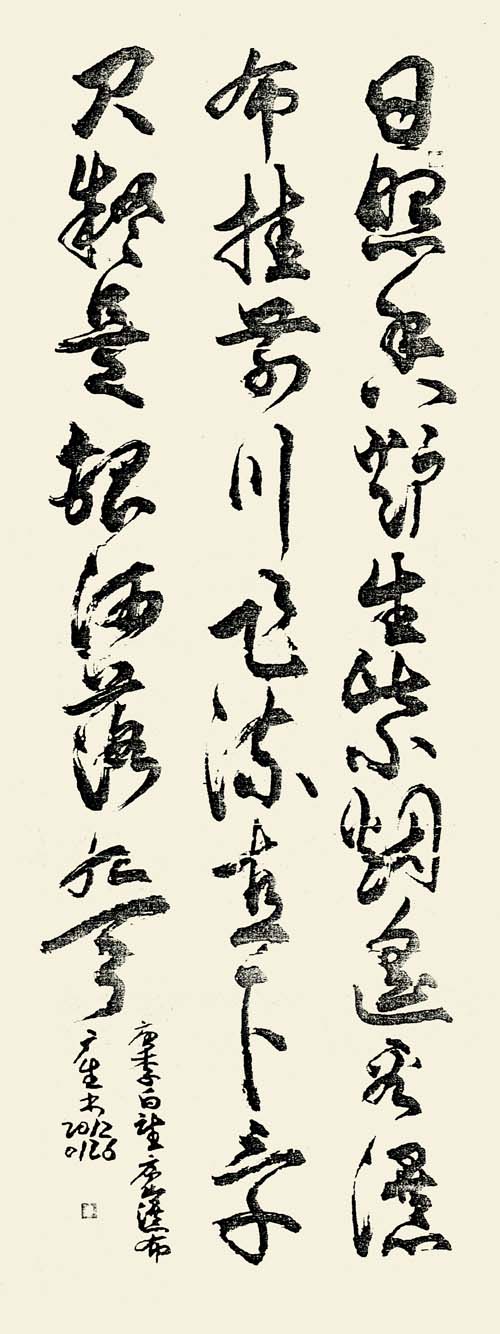 日照香炉生紫烟遥看瀑
布挂前川飞流直下三千
尺疑是银河落九天
唐李白望庐山瀑布
广生书
2012
0126